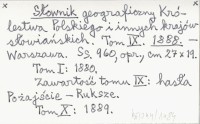 Słownik geograficzny Kró-
lestwa Polskiego i innych krajów
słowiańskich. Tom IX. 1888. —
Warszawa. S. 960, opr., cm 27 x 19.
Tom I: 1880.
Zawartość tomu IX: hasła
Pożajście — Ruksze.
Tom X: 1889.